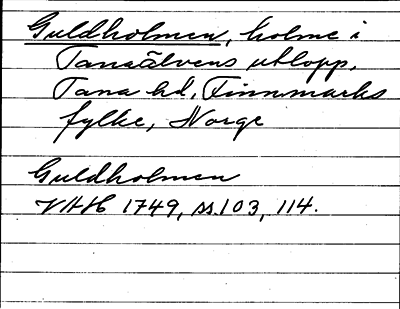 Guldholmen, holme i
Tanaälvens utlopp,
Tana hd, Finnmarks
fylke, Norge
Guldholmen
VHH 1749, ss.103, 114.